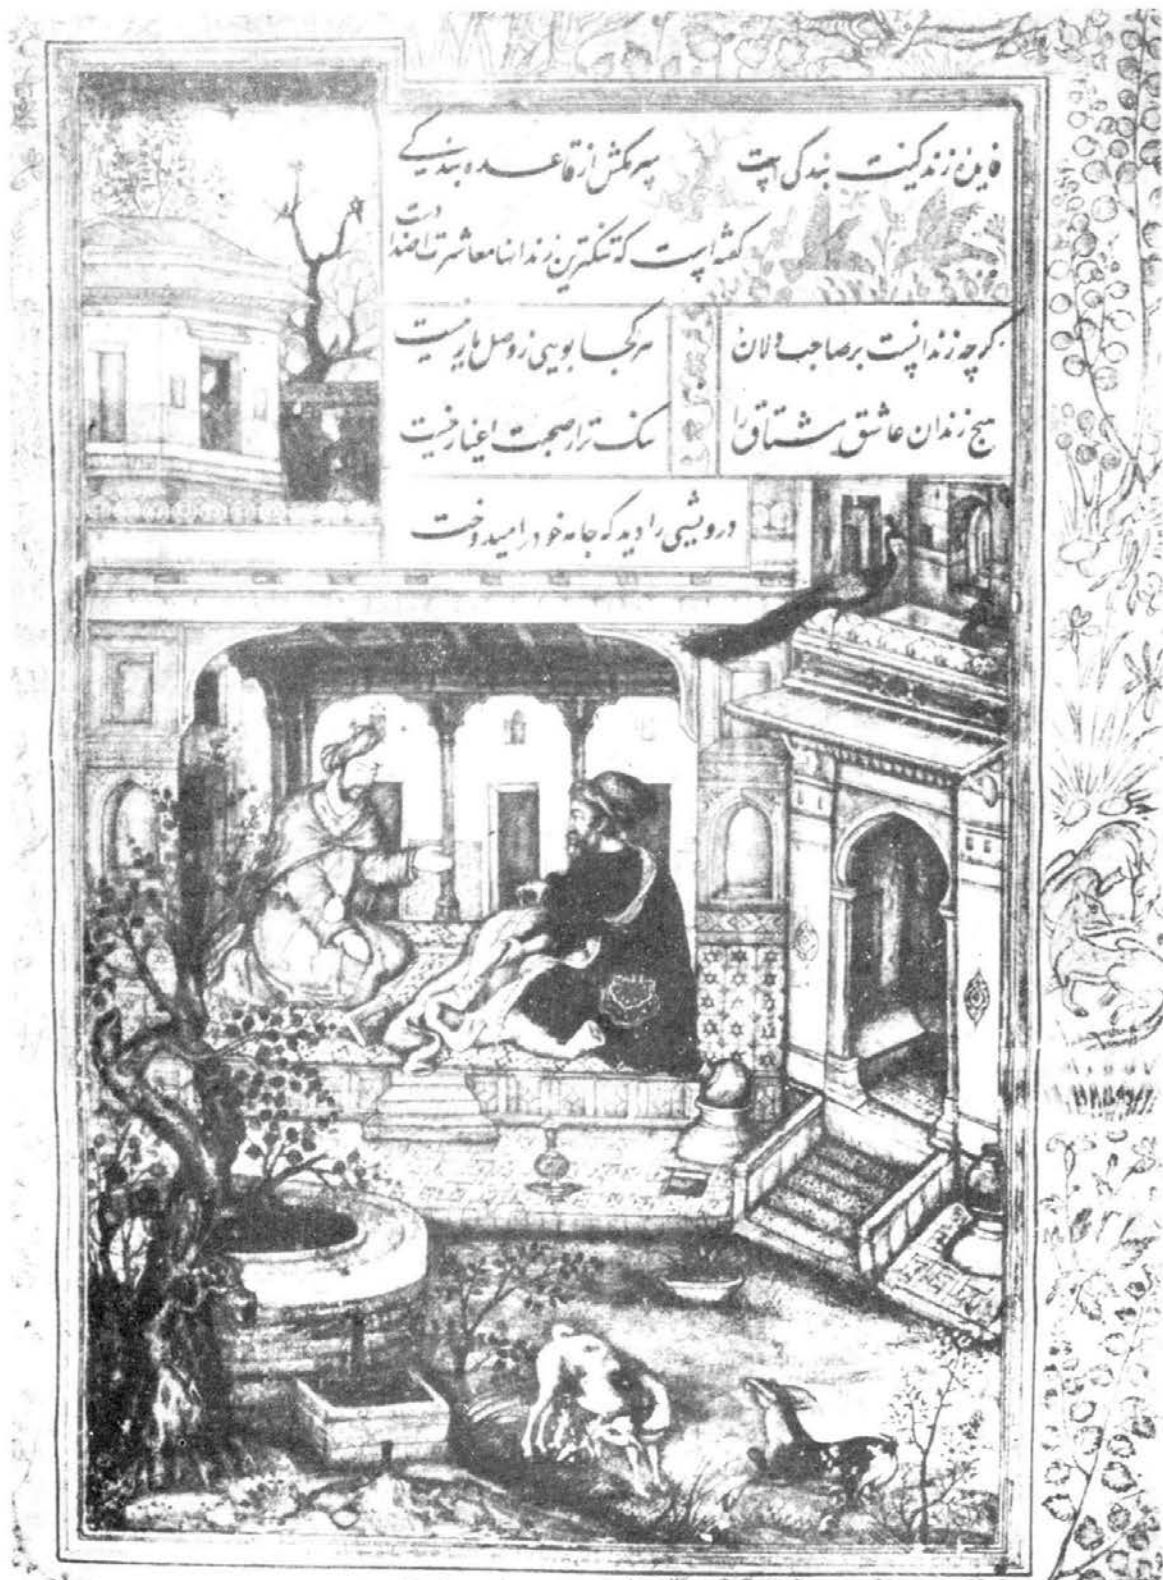 فاین زندگیت بندگی است سر مکش از قاعده بندگی
گفته است که تنگترین زندانها معاشرت اضداد است
گرچه زندانست بر صاحب دلان هر کجا بویی ز وصل یار نیست
هیچ زندان عاشق مشتاق را تنگ تر از صحبت اغیار نیست
درویشی را دید که جامه خود را میدوخت